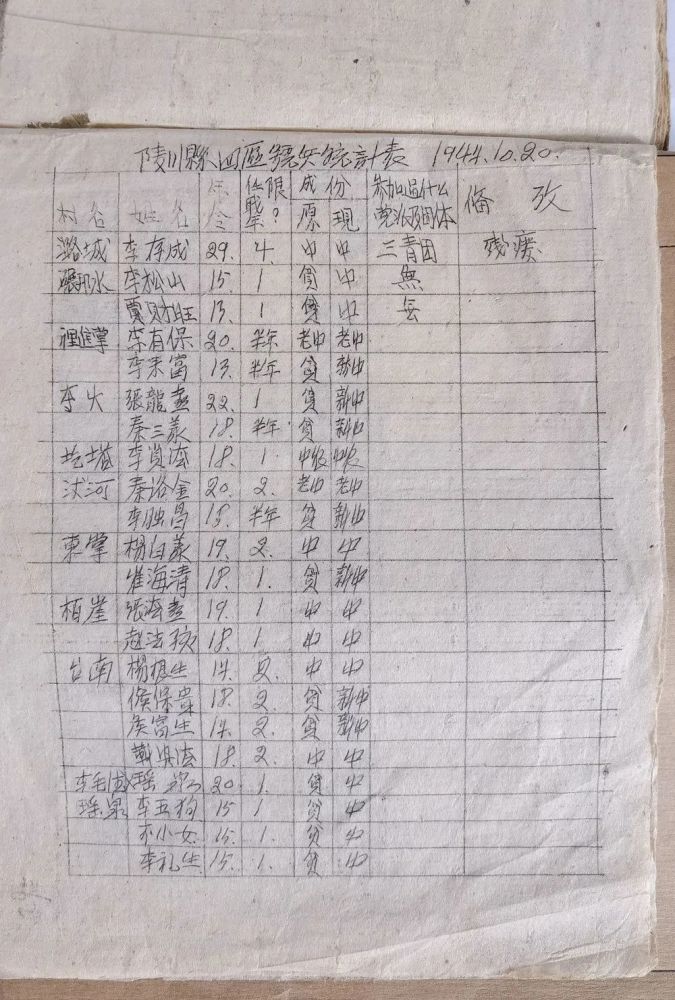 陵川縣四區號兵統計表 1944.10.20.
村名 姓名 年令 任職年限? 成份 原 现 参加过什么党派及团体 備攷
潞城 李存成 29. 4. 中 中 三青团 残废
水 李松山 15. 1 貧 中 無
賈财旺 13. 1 貧 中 無
裡進掌 李有保 20. 半年 老中 老中
李未富 13. 半年 貧 新中
李火 張龍 22. 1 貧 新中
秦三美 18. 半年 貧 新中
圪塔 李 18. 1. 中 中
河 秦洛金 20. 2. 老中 老中
李昌 18. 半年 貧 新中
東掌 楊白美 19. 2. 中 中
崔海清 18. 1. 貧 新中
柏崖 張 19. 1 中 中
赵法孩 18. 1 中 中
台南 楊根生 14. 2. 中 中
侯保贵 18. 2. 貧 新中
侯富生 14. 2. 貧 新中
18. 2. 中 中
李毛 20. 1. 貧 中
瑶泉 李五狗 15 1 貧 中
小女 15. 1. 貧 中
李礼生 15. 1. 貧 中